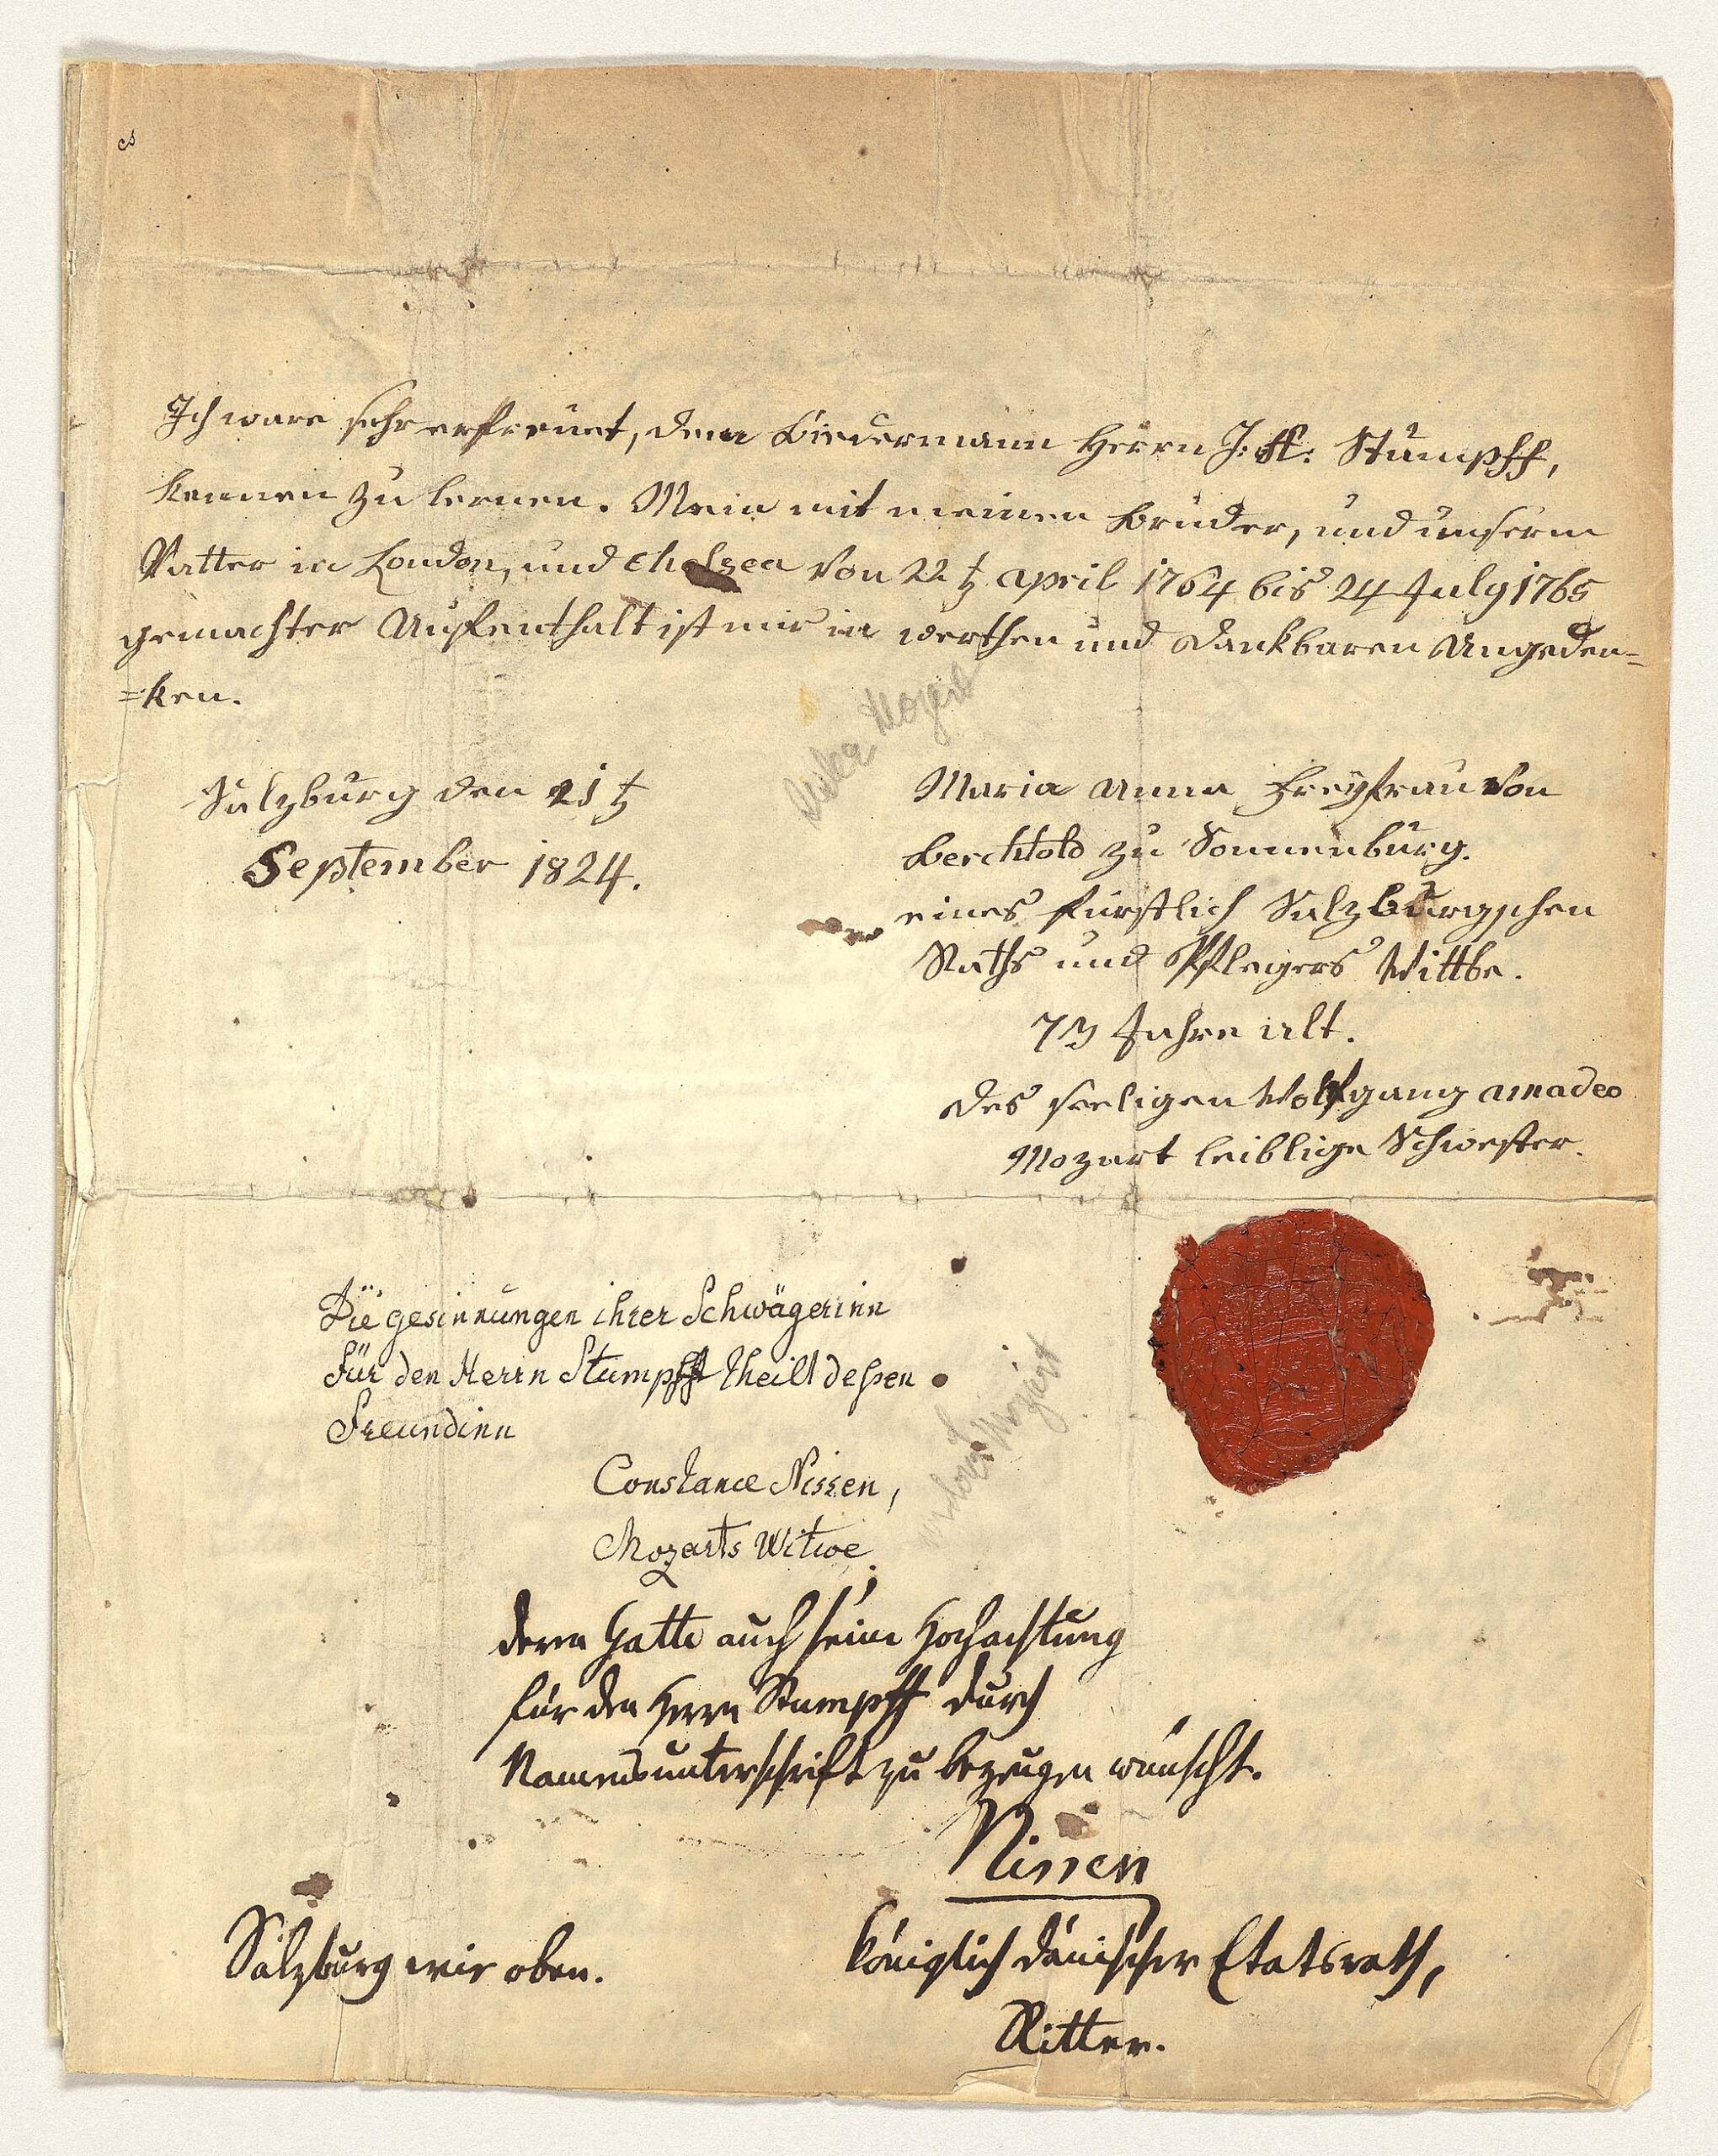 Ich ware sehr erfreuet, den Biedermann Herrn J: A: Stumpff,
kennen zu lernen. Mein mit meinen Bruder, und unserm
Vatter in London, und Chelsea von 22t April 1764 bis 24 July 1765
gemachter Aufenthalt ist mir in werthen und dankbaren Angeden=
=ken.
Salzburg den 21t
September 1824.
Maria Anna Freyfrau von
Berchtold zu Sonnenburg.
eines fürstlich Salzburgschen
Raths und Pflegers Wittbe.
73 Jahre alt.
des seeligen Wolfgang Amadeo
Mozart leiblige Schwester.
Die gesinnungen ihrer Schwägerinn
Für den Herrn Stumpff theilt dessen
Freundinn
Constance Nissen,
Mozarts Witwe
deren Gatte auch seine Hochachtung
für den Herrn Stumpff durch
Namensunterschrift zu bezeugen wünscht.
Nissen
Königlich dänischer Etatsrath,
Ritter.
Salzburg wie oben.
Mozart
widow Mozart